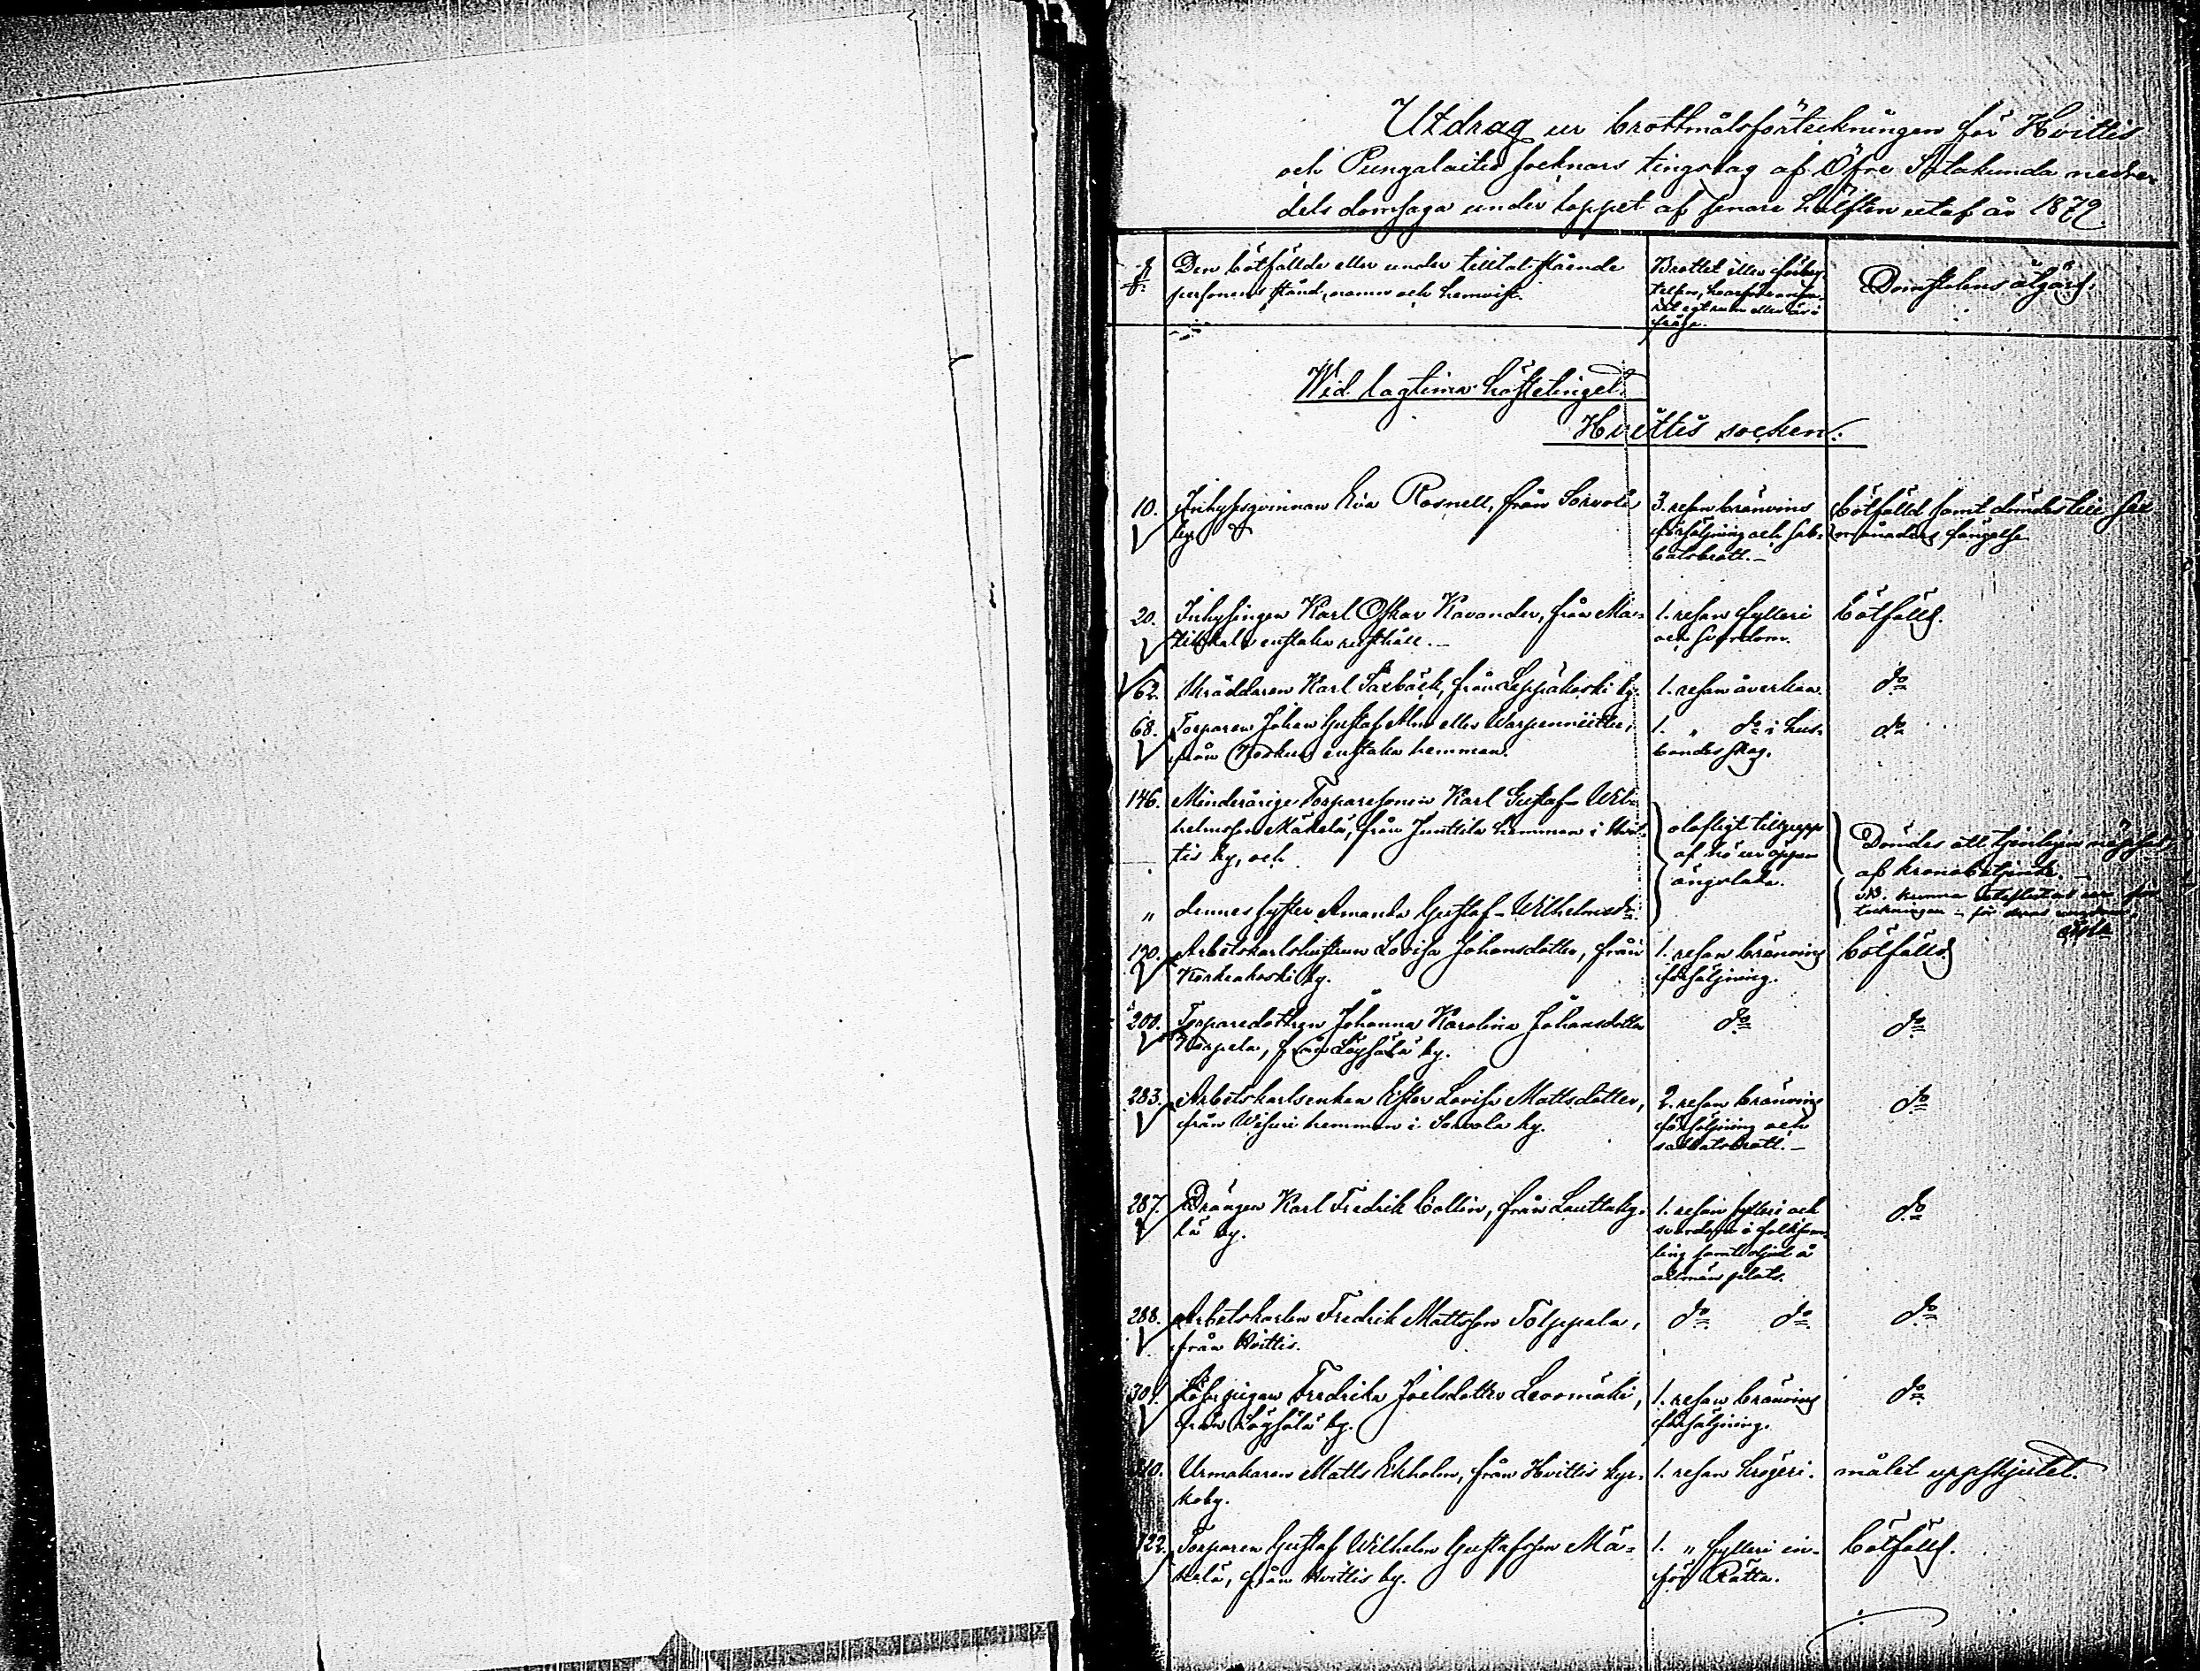 Utdrag ur brottmålsförteckningen för Hvittis
och Pungalaitio socknars tingslag af Öfre Satakunda nedre
dels domsaga under loppet af senare hälften utaf år 1879.
Den bötfällde eller under tilltal stående
personens stånd, namn och hemvist.
Brottet eller förbry-
telsen, hvarföre ansva-
ret egt rum eller är i
fråga.
Domstolens åtgärd.
Wid lagtima hösttinget.
Hvittis socken.
10. Inhysesqvinnan Eva Rosnell, från Sorvola
by.
3. resan bränvins
försäljning och sab-
batsbrott.
bötfälld samt dömdes till sex
månaders fängelse
20. Inhysingen Karl Oskar Kavander, från Ma-
enstaka rusthåll.
1. resan fylleri
och svordom.
bötfälld.
62. Skräddaren Karl Saxbäck, från Leppäkoski by.
1. resan åverkan.
do
68. Torparen Johan Gustaf Alm eller
från enstaka hemman.
1. " do i hus-
bondes skog.
do
146. Minderårige Torparesonen Karl Gustaf Wil-
helmsson Mäkelä, från Junttila hemman i Hvit-
tis by, och
" dennes syster Amanda Gustaf-Wilhelmsdr
olofligt tillgrepp
af hö ur öppen
ängslada.
Dömdes att
af kronobetjent.
NB. kunna
för deras
170. Arbetskarlshustrun Lovisa Johansdotter, från
Korkeakoski by.
1. resan bränvins
försäljning.
bötfälld
200. Torparedottren Johanna Karolina Johansdotter
Korpela, från Löysälä by.
do
do
283. Arbetskarlsenkan Ester Lovisa Mattsdotter,
från Wisuri hemman i Sorvola by.
2. resan bränvins
försäljning och
sabbatsbrott.
do
287. Drängen Karl Fredrik Collin, från Lauttaky-
lä by.
1. resan fylleri och
svordom i folksam-
ling samt oljud å
allmän plats.
do
288. Arbetskarlen Fredrik Mattsson Tolppala,
från Hvittis.
do do
do
301. Löspigan Fredrika Joelsdotter Levomäki,
från Löysälä by.
1. resan bränvins
försäljning.
do
Urmakaren Matts Ekholm, från Hvittis kyr-
koby.
1. resan krögeri.
målet uppskjutet.
122. Torparen Gustaf Wilhelm Gustafsson Mä-
kelä, från Hvittis by.
1. " fylleri in-
för Rätta.
bötfälld.